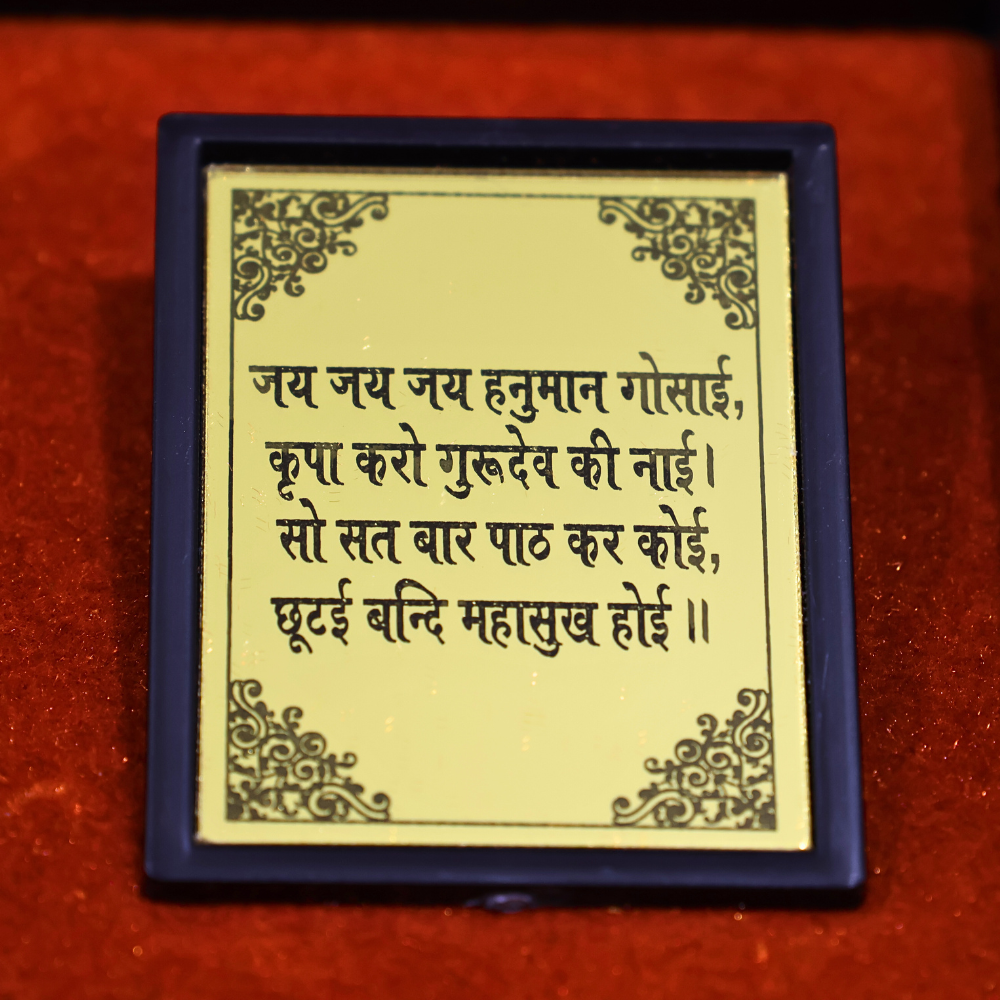 जय जय जय हनुमान गोसाई,
कृपा करो गुरूदेव की नाई।
सो सत बार पाठ कर कोई,
छूटई बन्दि महासुख होई ॥